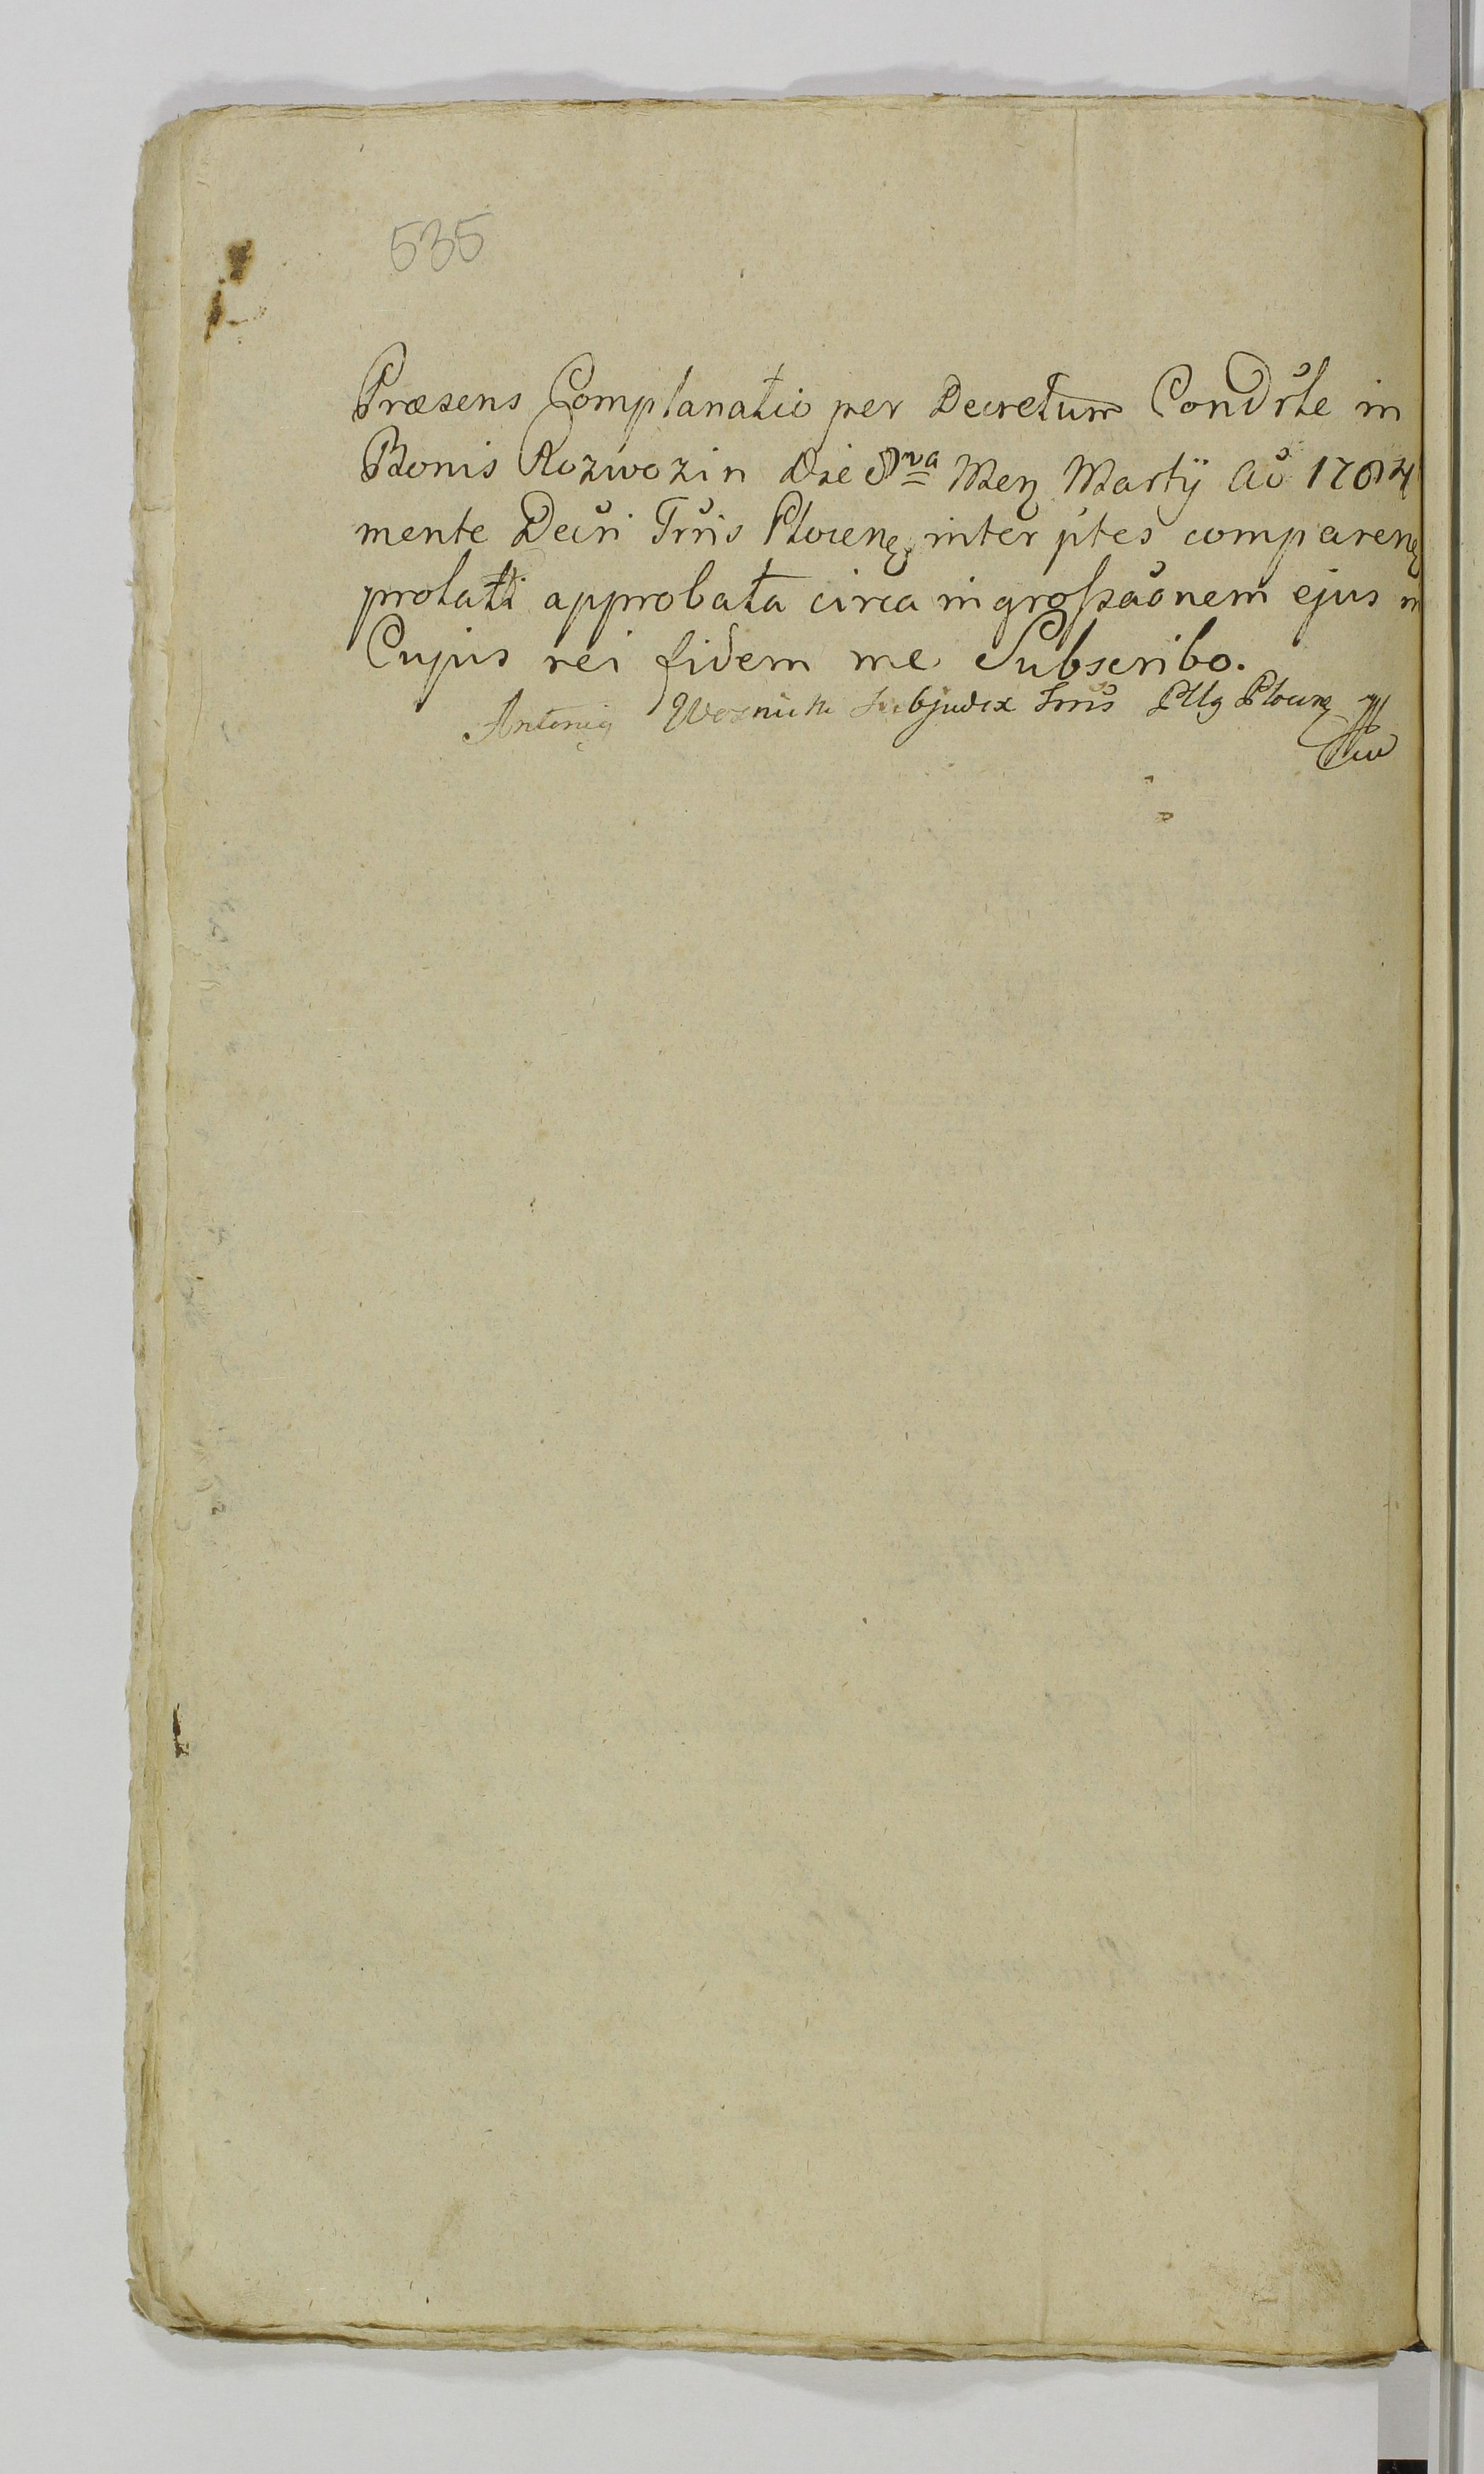 535
Præsens Complanatio per Decretum Condrte in
Bonis Rozwozin Die 8va Men Martij Ao 1784
mente Decri Trris Plocen inter ptes comparen
prolati approbata circa ingrossaonem ejus in
Cujus rei fidem me Subscribo.
Antoni Woznicki Subjudex Trris Plocen